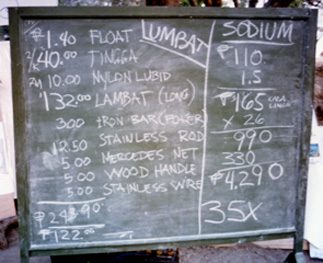 LUMBAT
1.40 FLOAT
40.00 TINGGA
10.00 NYLON LUBID
132.00 LAMBAT (LONG)
300 IRON BAR (POWER)
12.50 STAINLESS ROD
5.00 MERCEDES NET
5.00 WOOD HANDLE
5.00 STAINLESS WIRE
₱ 243.90
₱ 122.00
SODIUM
₱110
1.5
₱165
x 26
990
330
₱4,290
35X